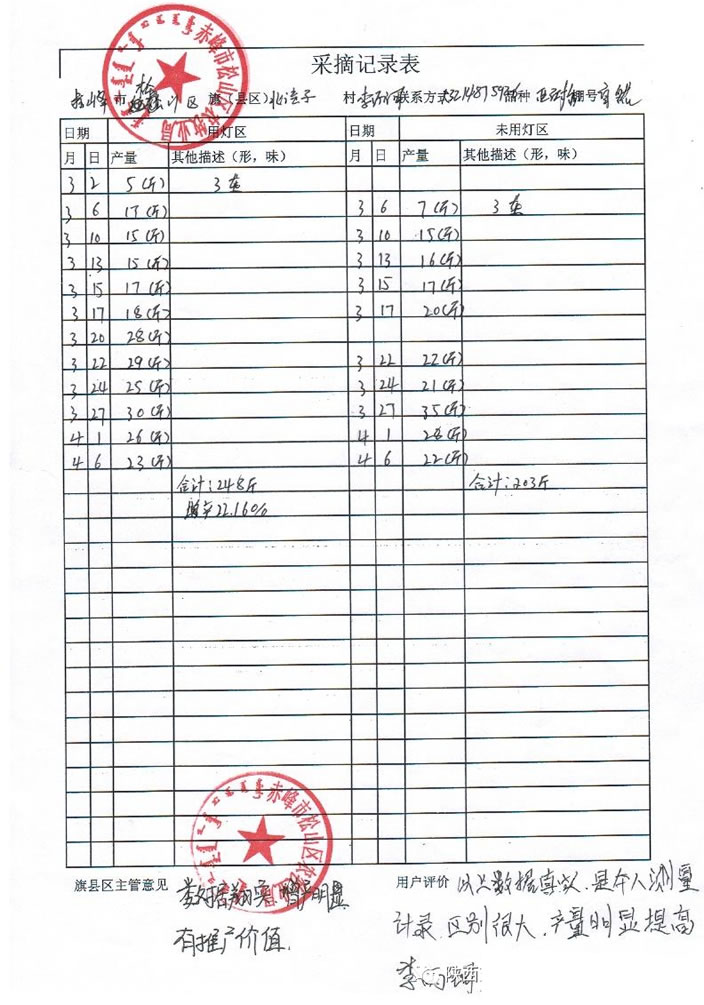 采摘记录表
市 区 旗（县区） 村 联系方式 品种 棚号
日期 用灯区 日期 未用灯区
月 日 产量 其他描述（形，味） 月 日 产量 其他描述（形，味）
3 2 5(斤) 3垄
3 6 17(斤) 3 6 7(斤) 3垄
3 10 15(斤) 3 10 15(斤)
3 13 15(斤) 3 13 16(斤)
3 15 17(斤) 3 15 17(斤)
3 17 18(斤) 3 17 20(斤)
3 20 28(斤)
3 22 29(斤) 3 22 22(斤)
3 24 25(斤) 3 24 21(斤)
3 27 30(斤) 3 27 35(斤)
4 1 26(斤) 4 1 28(斤)
4 6 23(斤) 4 6 22(斤)
合计:248斤 合计:203斤
22.160%
赤峰市松山区农牧业局
旗县区主管意见 数据翔实 明显
有推广价值.
用户评价 以上数据真实,是本人测量
计录,区别很大,产量明显提高
李
陕西